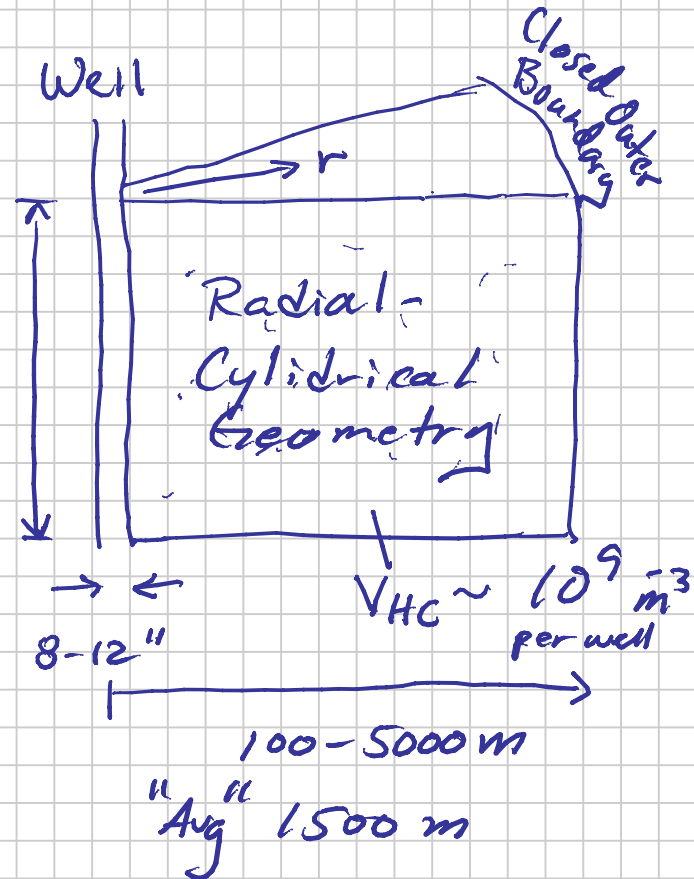 Well
Closed Outer
Boundary
r
Radial-
Cylidrical
Geometry
V_HC ~ 10^9 m^3
per well
8-12"
100-5000 m
"Avg" 1500 m